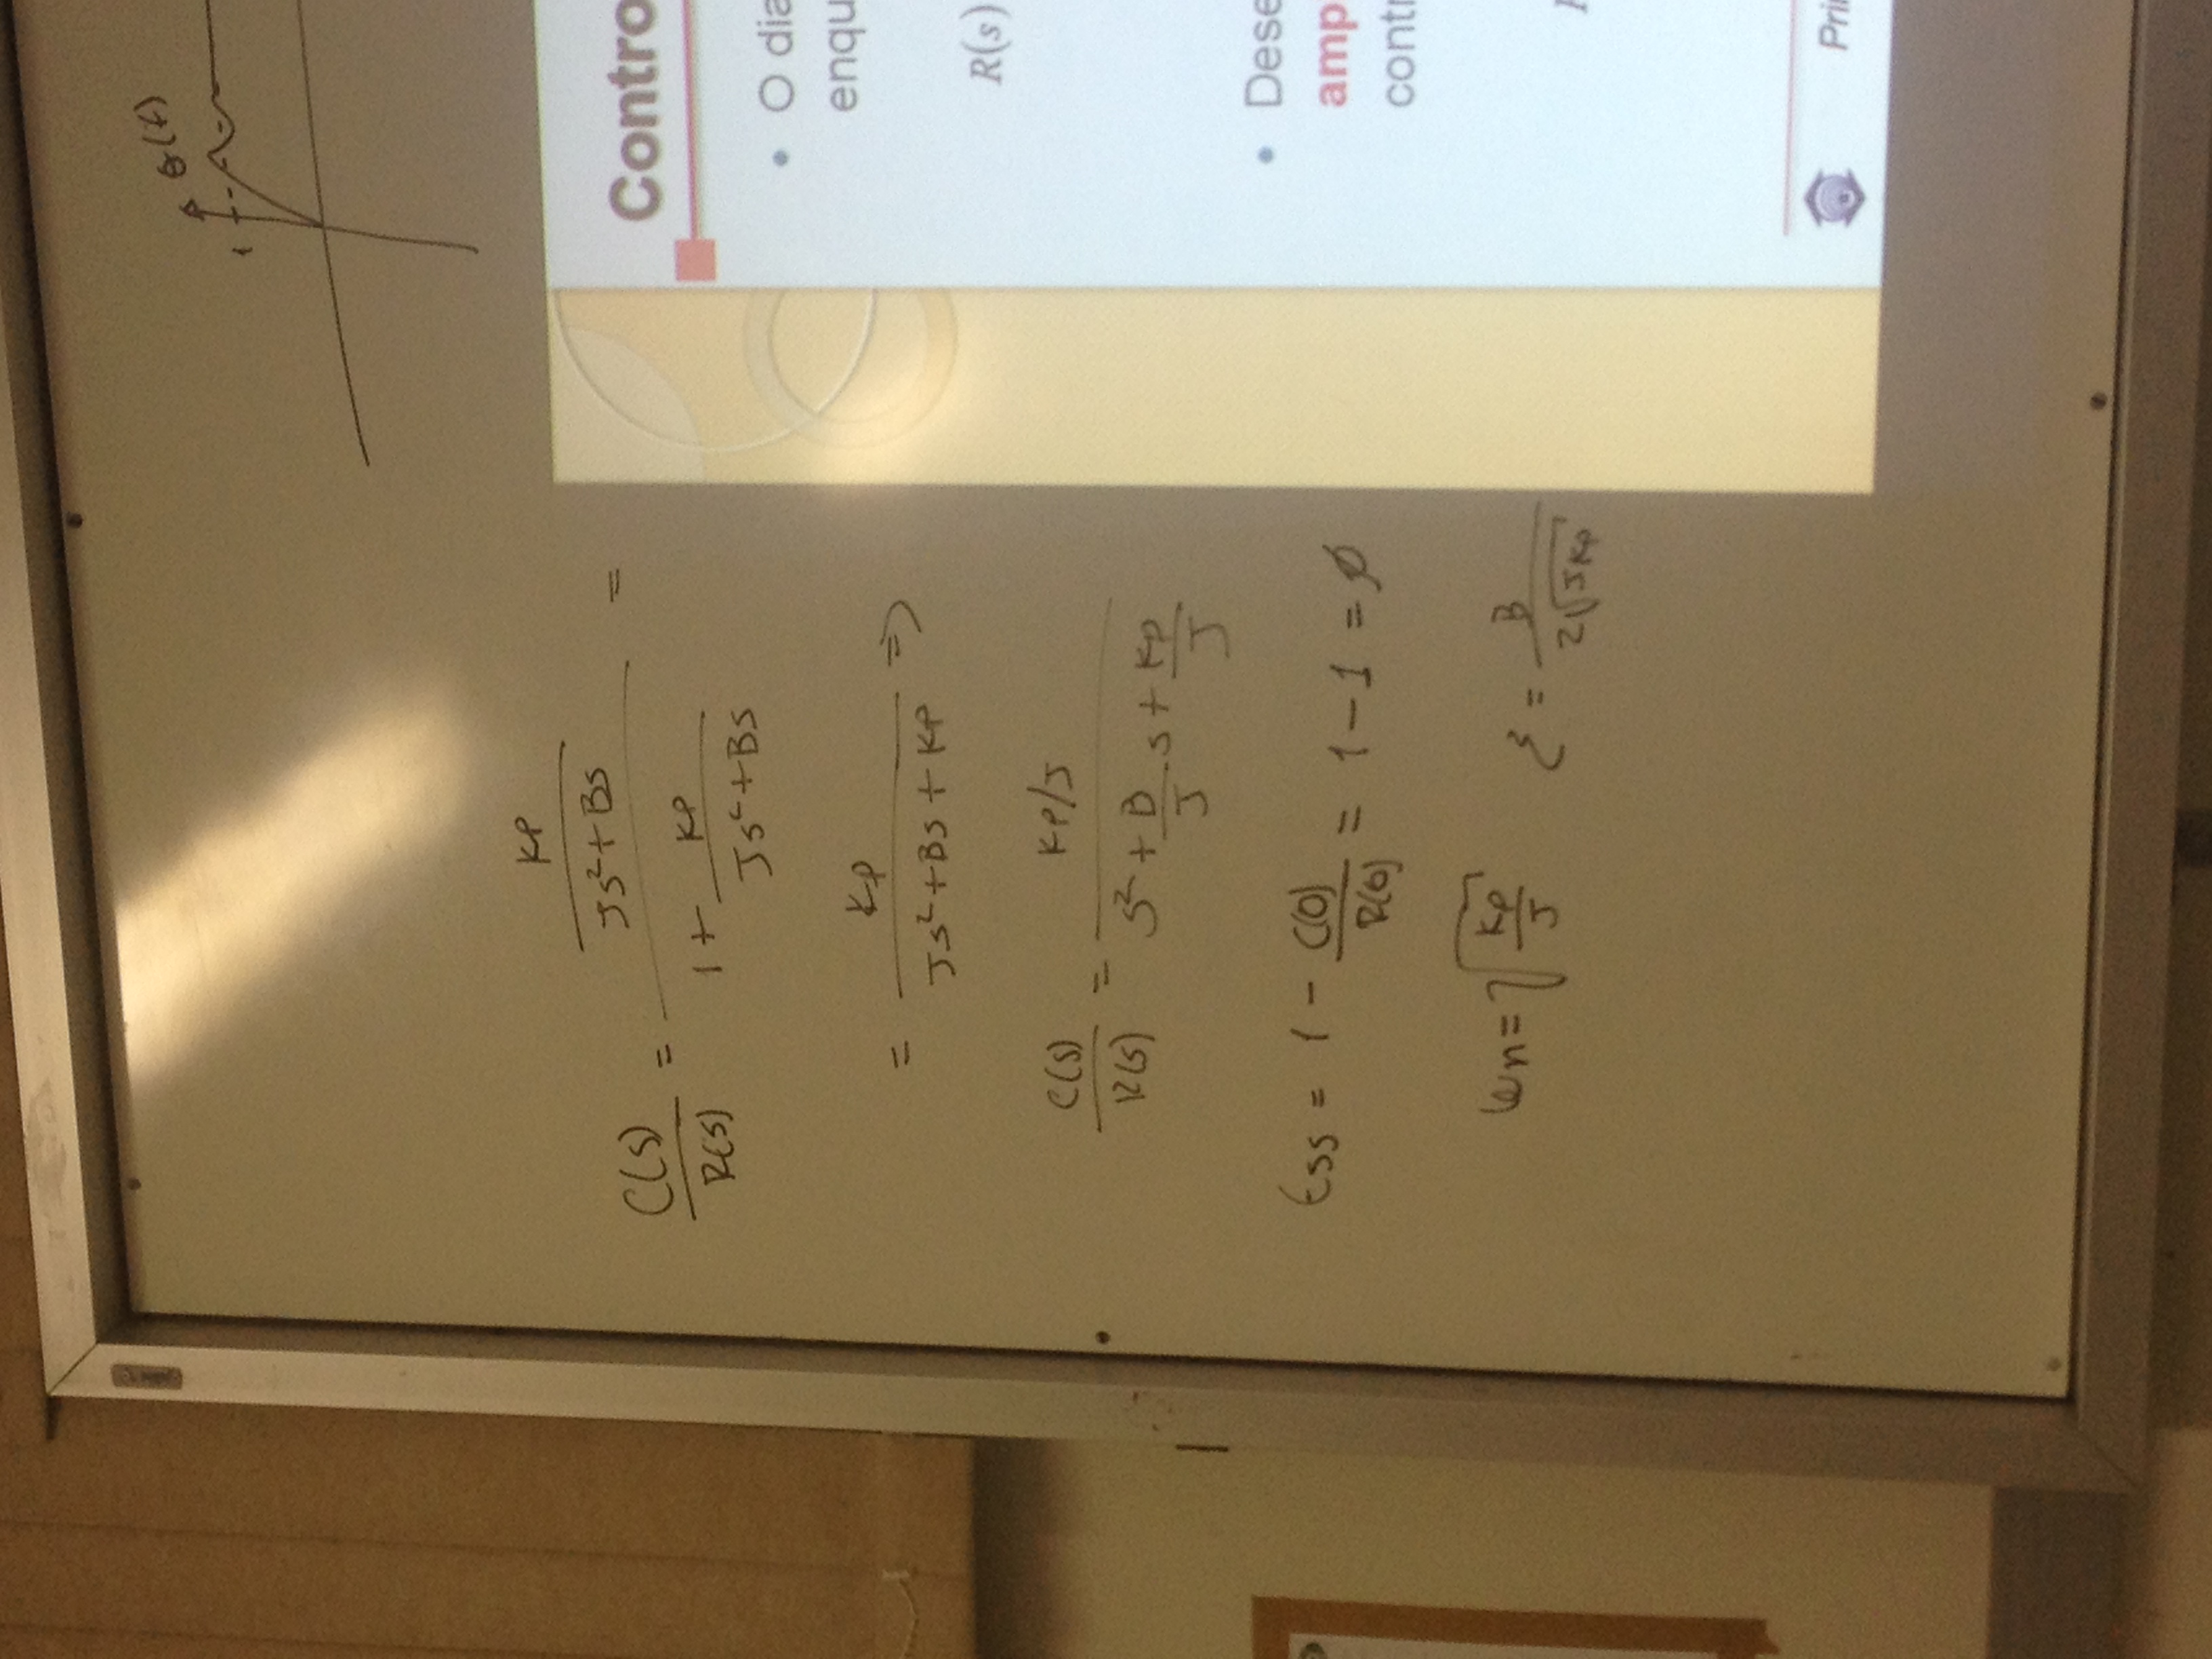 θ(t)
1
C(s)/R(s) = (KP/(Js²+Bs))/(1+KP/(Js²+Bs)) =
= Kp/(Js²+Bs+KP) =>
C(s)/R(s) = KP/J/(s²+B/J s+Kp/J)
Ess = 1 - C(0)/R(0) = 1-1 = ø
ωn=√(Kp/J) ξ = B/(2√(JKp))
Contro
• O dia
enqu
R(s)
• Dese
amp
contr
Pri